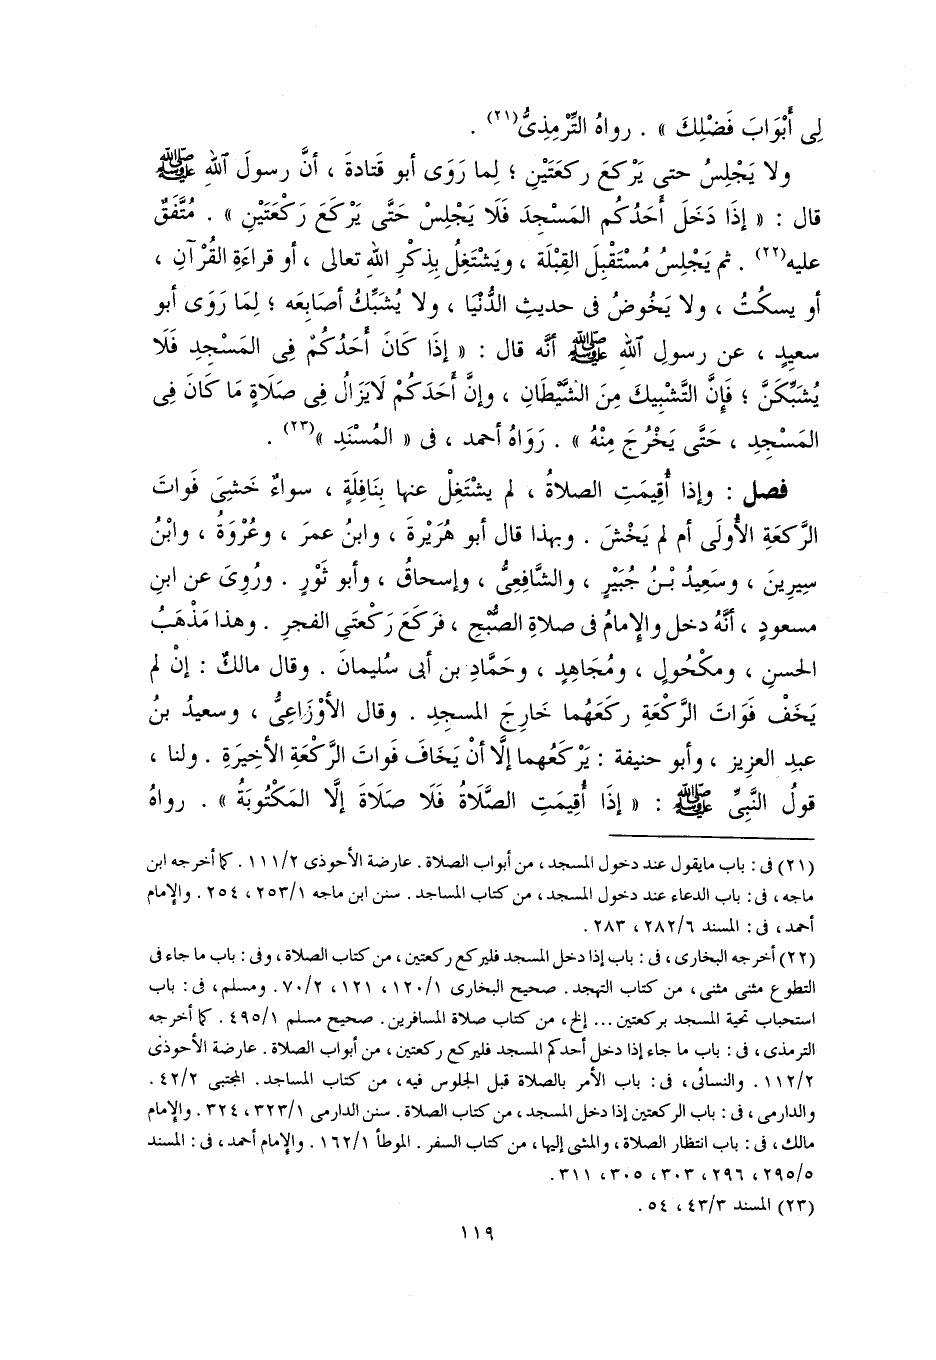 لِى أَبْوَابَ فَضْلِكَ » . رواهُ التِّرْمِذِىُّ(٢١) .
ولا يَجْلِسُ حتى يَرْكَعَ ركعَتَيْنِ ؛ لِما رَوَى أبو قَتادةَ ، أنَّ رسولَ اللهِ ﷺ
قال : « إذَا دَخَلَ أَحَدُكُم المَسْجِدَ فَلَا يَجْلِسْ حَتَّى يَرْكَعَ رَكْعَتَيْنِ » . مُتَّفَقٌ
عليه(٢٢) . ثم يَجْلِسُ مُسْتَقْبِلَ القِبْلَة ، ويَشْتَغِلُ بِذِكْرِ اللهِ تعالى ، أو قراءَةِ القُرْآنِ ،
أو يسكُتُ ، ولا يَخُوضُ فى حديثِ الدُّنْيَا ، ولا يُشَبِّكُ أصابِعَه ؛ لِمَا رَوَى أبو
سعيدٍ ، عن رسولِ اللهِ ﷺ أنَّه قال : « إذَا كَانَ أَحَدُكُمْ فِى المَسْجِدِ فَلَا
يُشَبِّكَنَّ ؛ فَإِنَّ التَّشْبِيكَ مِنَ الشَّيْطَانِ ، وإنَّ أَحَدَكُمْ لَايَزَالُ فِى صَلَاةٍ مَا كَانَ فِى
المَسْجِدِ ، حَتَّى يَخْرُجَ مِنْهُ » . رَوَاهُ أحمد ، فى « المُسْنَدِ »(٢٣) .
فصل : وإذا أُقِيمَتِ الصلاةُ ، لم يشتَغِلْ عنها بِنَافِلَةٍ ، سواءٌ خَشِىَ فَواتَ
الرَّكعَةِ الأُولَى أم لم يَخْشَ . وبهذا قال أبو هُرَيْرةَ ، وابنُ عمرَ ، وعُرْوَةُ ، وابْنُ
سِيرِينَ ، وسَعِيدُ بْنُ جُبَيْرٍ ، والشَّافِعِىُّ ، وإسحاقُ ، وأبو ثَوْرٍ . ورُوِىَ عن ابنِ
مسعودٍ ، أنَّهُ دخل والإمامُ فى صلاةِ الصُّبْحِ ، فرَكَعَ رَكْعتَىِ الفجرِ . وهذا مَذْهَبُ
الحسنِ ، ومكْحُولٍ ، ومُجَاهِدٍ ، وحَمَّادِ بن أبى سُليمانَ . وقال مالكٌ : إنْ لم
يَخَفْ فَوَاتَ الرَّكْعَةِ ركَعَهُما خارِجَ المسجدِ . وقال الأَوْزَاعِىُّ ، وسعيدُ بنُ
عبدِ العزيزِ ، وأبو حنيفة : يَرْكَعُهما إلَّا أنْ يَخَافَ فَواتَ الرَّكْعَةِ الأخِيرَةِ . ولنا ،
قولُ النَّبِىِّ ﷺ : « إذَا أُقِيمَتِ الصَّلَاةُ فَلَا صَلَاةَ إلَّا المَكْتُوبَةُ » . رواهُ
(٢١) فى : باب مايقول عند دخول المسجد ، من أبواب الصلاة . عارضة الأحوذى ١١١/٢ . كما أخرجه ابن
ماجه ، فى : باب الدعاء عند دخول المسجد ، من كتاب المساجد . سنن ابن ماجه ٢٥٣/١ ، ٢٥٤ . والإمام
أحمد ، فى : المسند ٢٨٢/٦ ، ٢٨٣ .
(٢٢) أخرجه البخارى ، فى : باب إذا دخل المسجد فليركع ركعتين ، من كتاب الصلاة ، وفى : باب ما جاء فى
التطوع مثنى مثنى ، من كتاب التهجد . صحيح البخارى ١٢٠/١ ، ١٢١ ، ٧٠/٢ . ومسلم ، فى : باب
استحباب تحية المسجد بركعتين ... إلخ ، من كتاب صلاة المسافرين . صحيح مسلم ٤٩٥/١ . كما أخرجه
الترمذى ، فى : باب ما جاء إذا دخل أحدكم المسجد فليركع ركعتين ، من أبواب الصلاة . عارضة الأحوذى
١١٢/٢ . والنسائى ، فى : باب الأمر بالصلاة قبل الجلوس فيه ، من كتاب المساجد . المجتبى ٤٢/٢ .
والدارمى ، فى : باب الركعتين إذا دخل المسجد ، من كتاب الصلاة . سنن الدارمى ٣٢٣/١ ، ٣٢٤ . والإمام
مالك ، فى : باب انتظار الصلاة ، والمشى إليها ، من كتاب السفر . الموطأ ١٦٢/١ . والإمام أحمد ، فى : المسند
٢٩٥/٥ ، ٢٩٦ ، ٣٠٣ ، ٣٠٥ ، ٣١١ .
(٢٣) المسند ٤٣/٣ ، ٥٤ .
١١٩